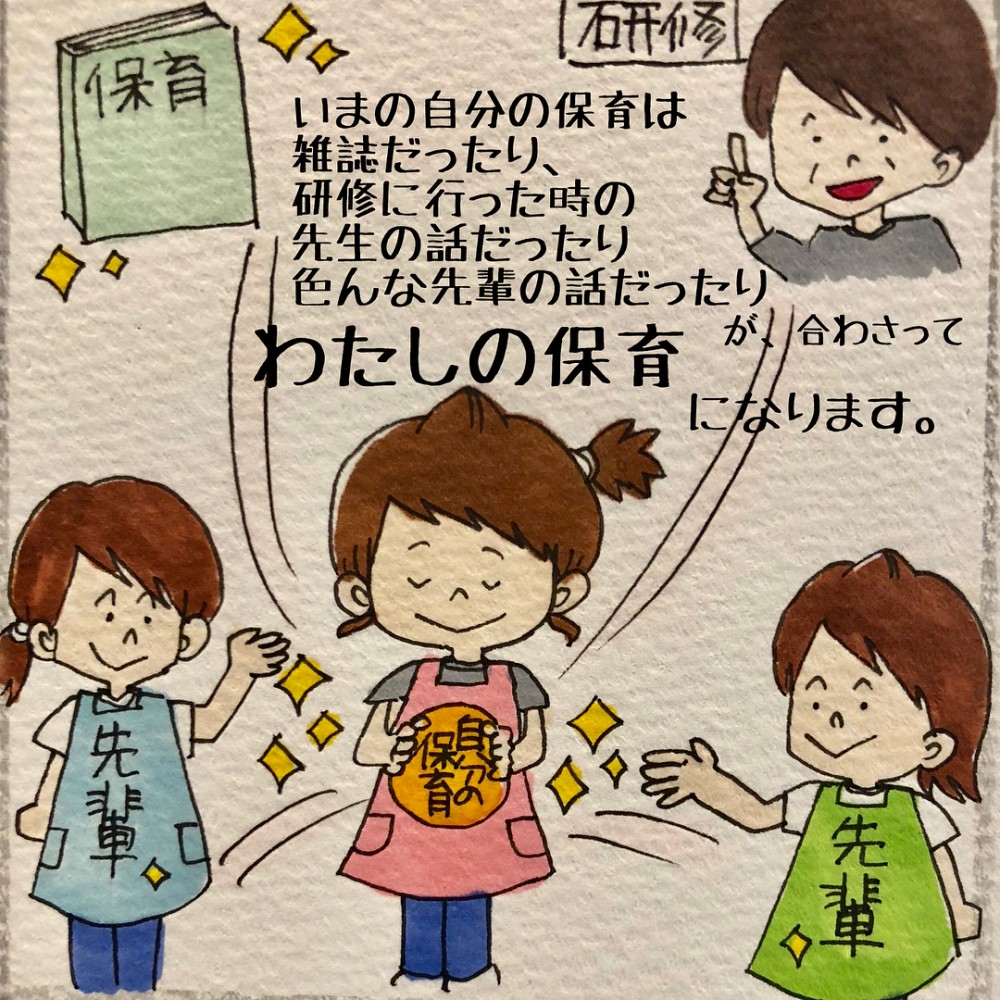 保育
研修
いまの自分の保育は
雑誌だったり、
研修に行った時の
先生の話だったり
色んな先輩の話だったり
が、合わさって
わたしの保育
になります。
自分の
保育
先輩
先輩